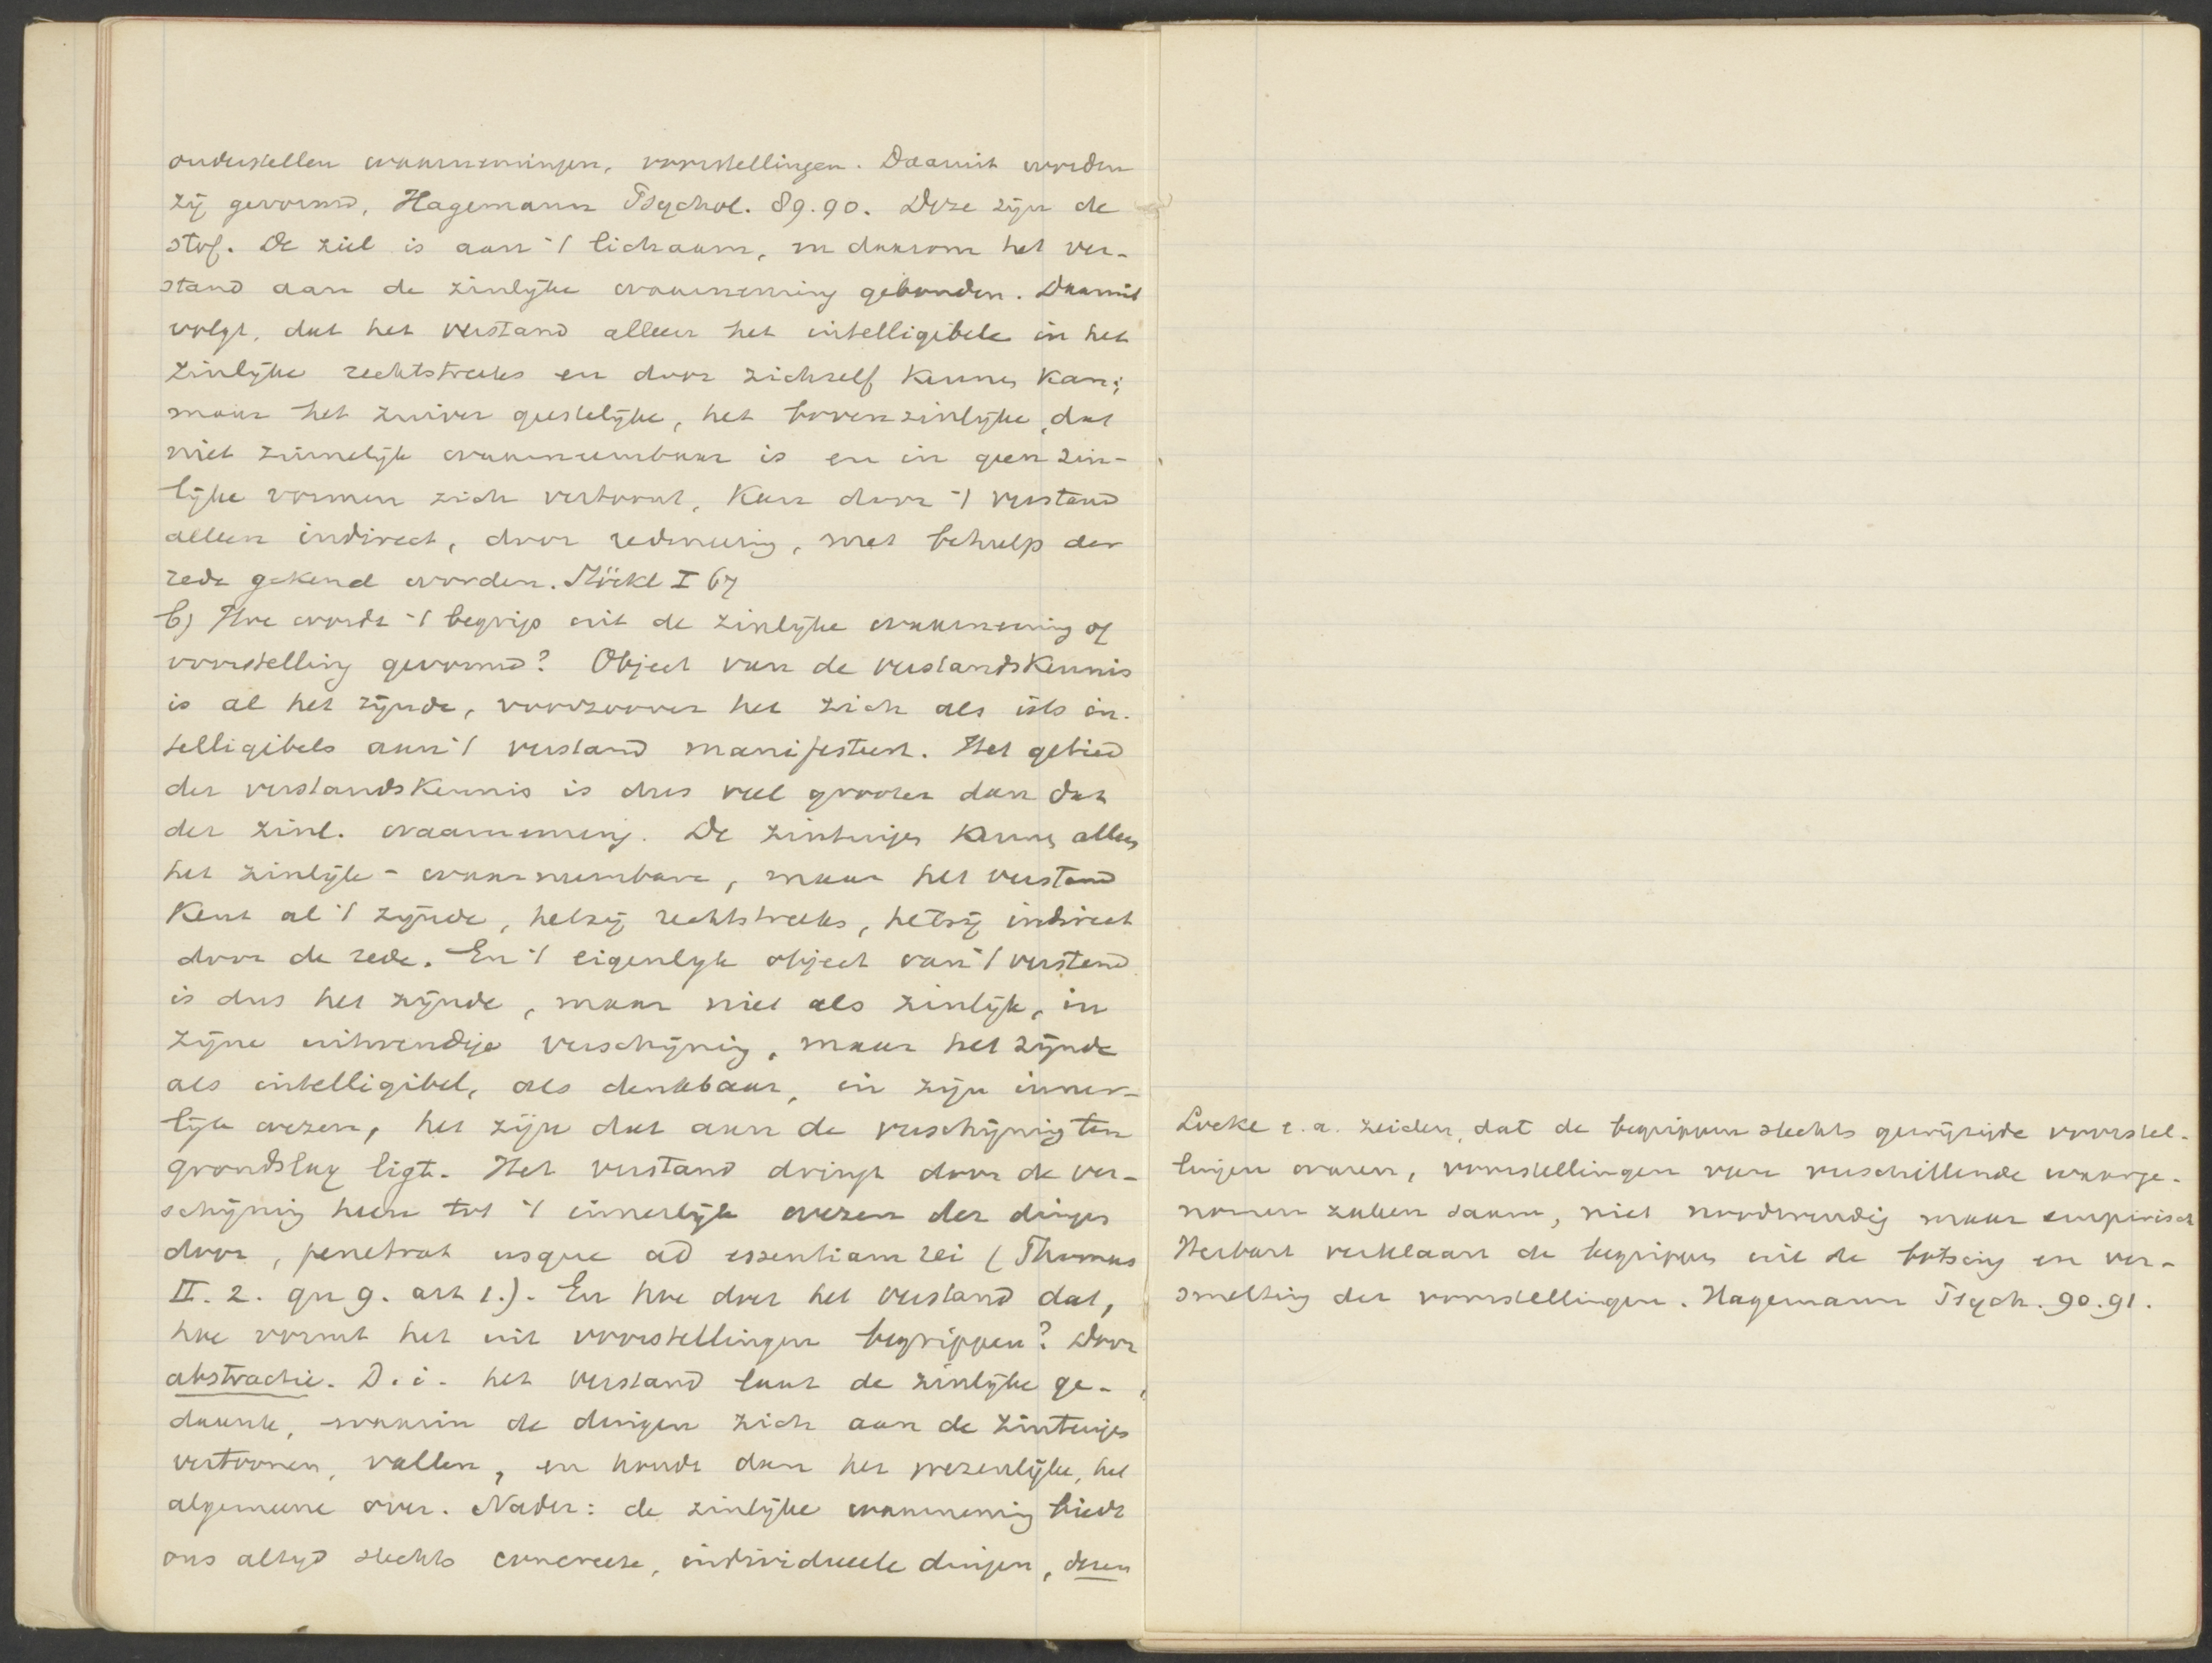 onderstellen waarnemingen, voorstellingen. Daaruit worden
zij gevormd, Hagemann Psychol. 89.90. Deze zijn de
stof. De ziel is aan 't lichaam, en daarom het ver-
stand aan de zinlijke waarneming gebonden. Daaruit
volgt, dat het verstand alleen het intelligibele in het
zinlijke rechtstreeks en door zichzelf kennen kan;
maar het zuiver geestelijke, het bovenzinlijke, dat
niet zinnelijk waarneembaar is en in geen zin-
lijke vormen zich vertoont, kan door 't verstand
alleen indirect, door redeneering, met behulp der
rede gekend worden. Stöckl I 67
b) Hoe wordt 't begrip uit de zinlijke waarneming of
voorstelling gevormd? Object van de verstandskennis
is al het zijnde, voorzoover het zich als iets in-
telligibels aan 't verstand manifesteert. Het gebied
der verstandskennis is dus veel grooter dan dat
der zinl. waarneming. De zintuigen kennen alleen
het zinlijk-waarneembare, maar het verstand
kent al 't zijnde, hetzij rechtstreeks, hetzij indirect
door de rede. En 't eigenlijk object van 't verstand
is dus het zijnde, maar niet als zinlijk, in
zijne uitwendige verschijning, maar het zijnde
als intelligibel, als denkbaar, in zijn inner-
lijk wezen, het zijn dat aan de verschijning ten
grondslag ligt. Het verstand dringt door de ver-
schijning heen tot 't innerlijk wezen der dingen
door, penetrat usque ad essentiam rei (Thomas
II. 2. qu 9. art 1.). En hoe doet het verstand dat,
hoe vormt het uit voorstellingen begrippen? Door
abstractie. D.i. het verstand laat de zinlijke ge-
daante, waarin de dingen zich aan de zintuigen
vertoonen, vallen, en houdt dan het wezenlijke, het
algemeene over. Nader: de zinlijke waarneming biedt
ons altijd slechts concreete, individueele dingen, deze
Locke e.a. zeiden, dat de begrippen slechts gewijzigde voorstel-
lingen waren, voorstellingen van verschillende waarge-
nomen zaken saam, niet noodwendig maar empirisch
Herbart verklaart de begrippen uit de botsing en ver-
smelting der voorstellingen. Hagemann Psych. 90.91.